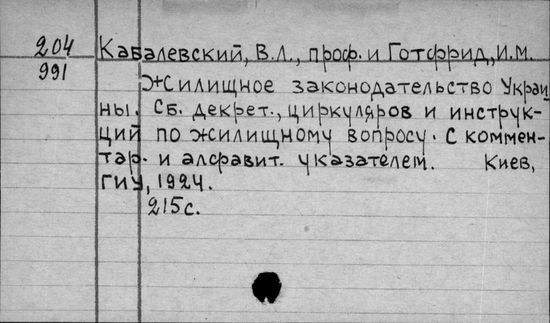 204 Кабалевский, В.Л., проф. и Готфрид, И.М.
991
Жилищное законодательство Украи-
ны. Сб. декрет., циркуляров и инструк-
ций по жилищному вопросу. С коммен-
тар. и алфавит. указателем. Киев,
ГИУ, 1924.
215с.